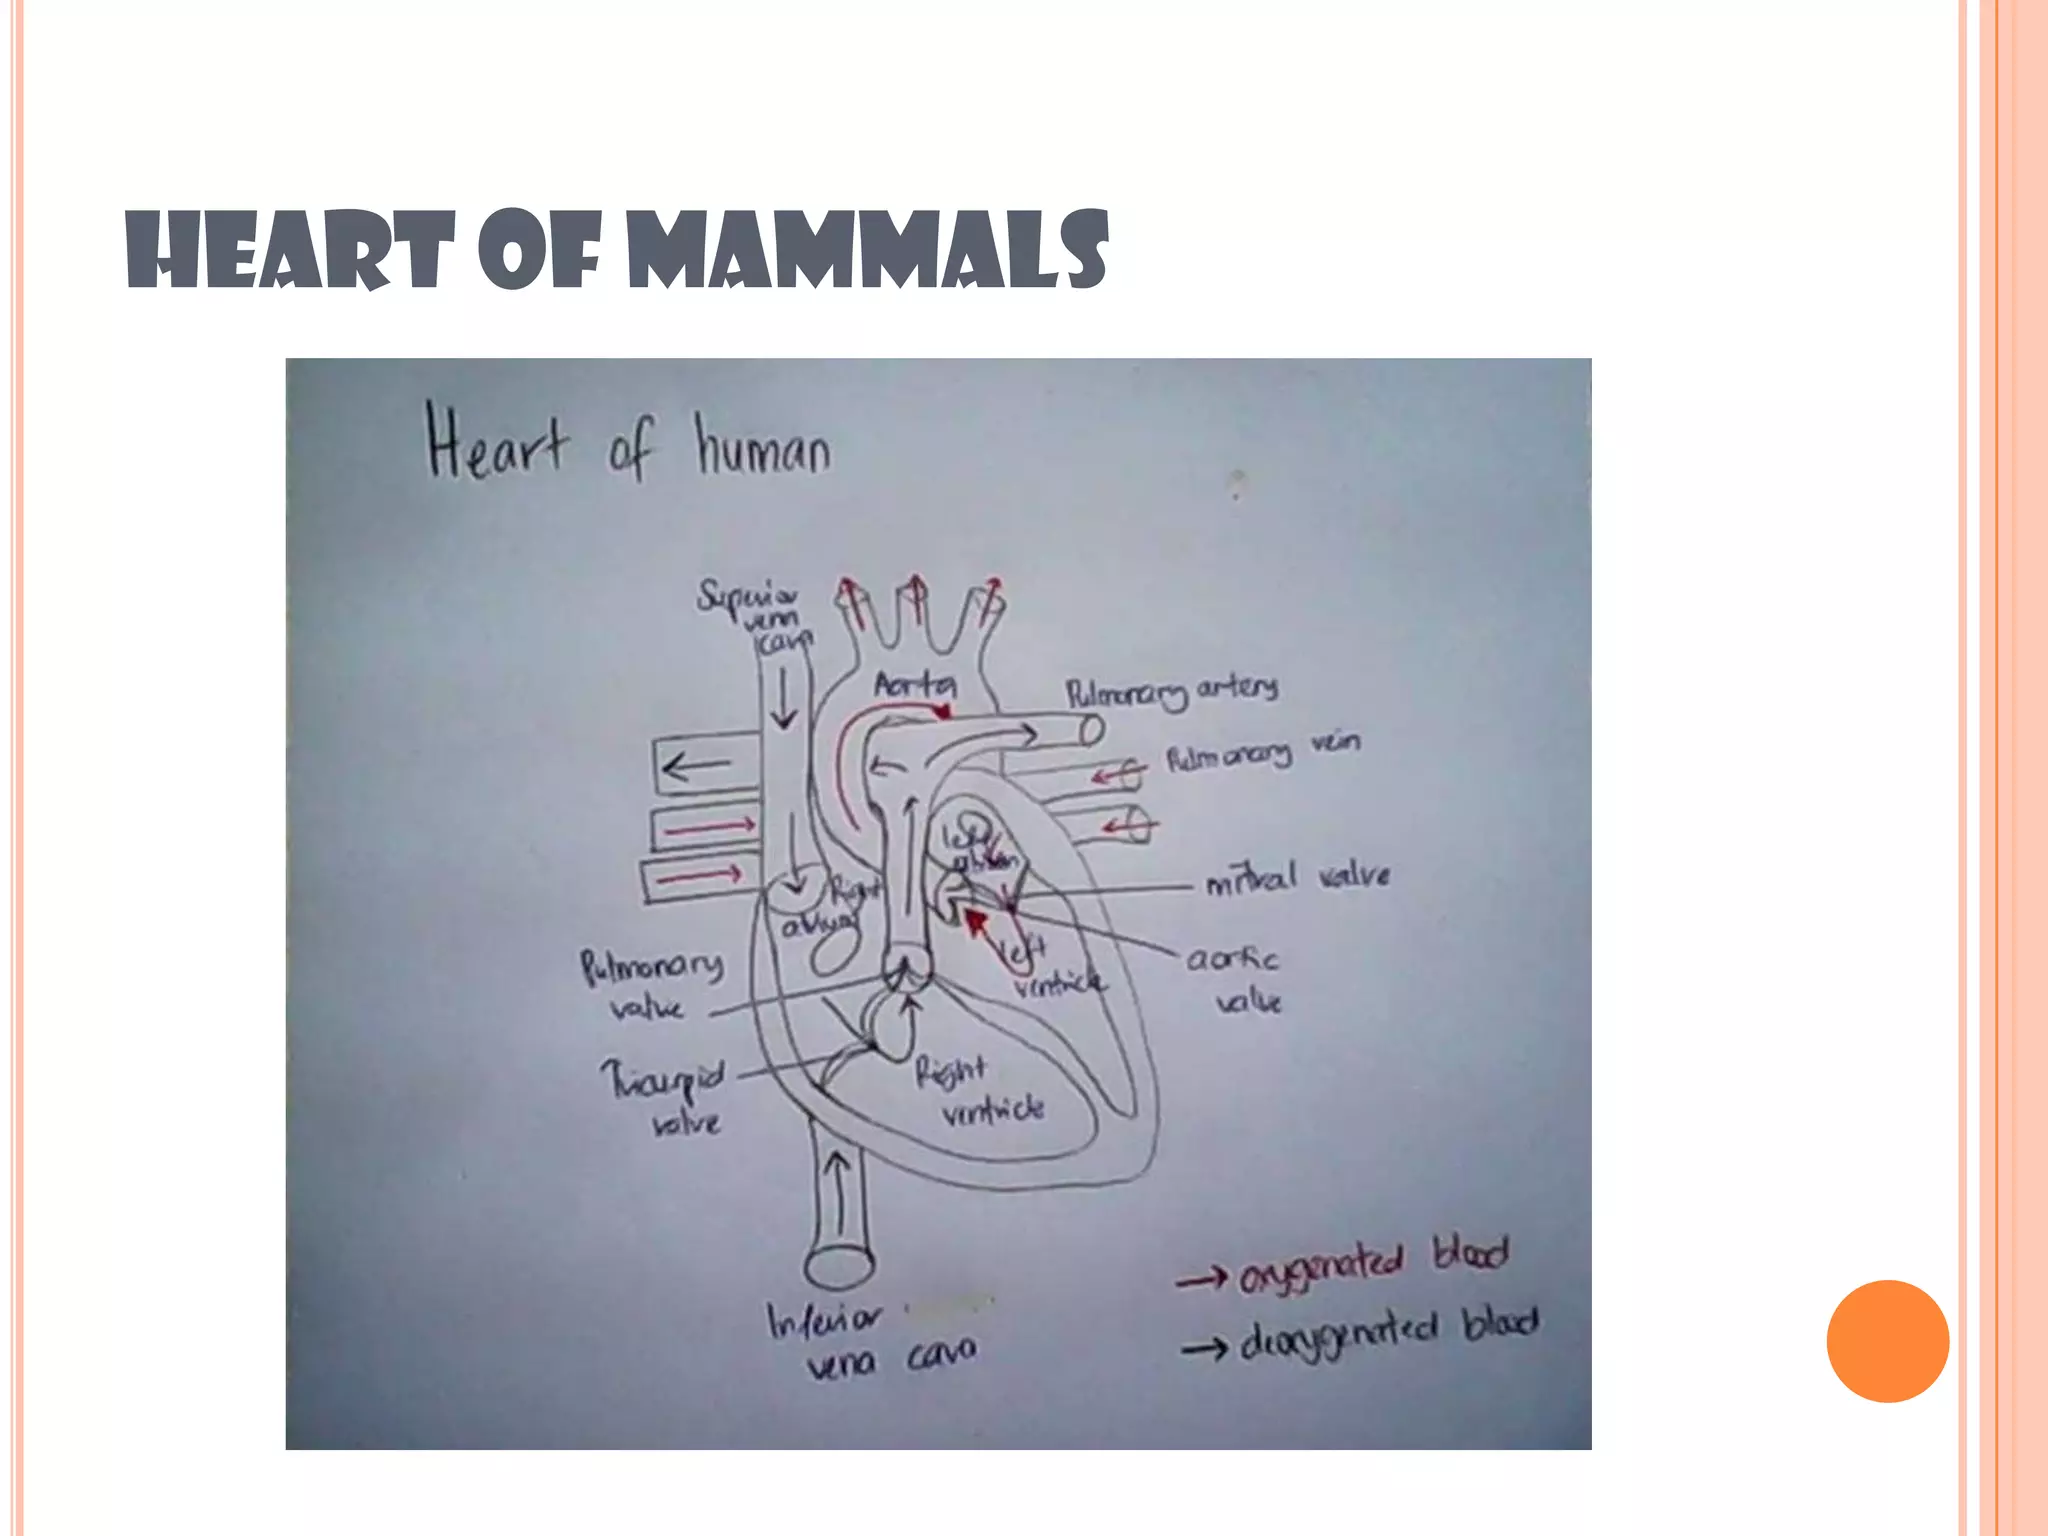 HEART OF MAMMALS
Heart of human
Superior
vena
cava
Aorta
Pulmonary artery
Pulmonary vein
left
atrium
Right
atrium
mitral valve
left
ventricle
aortic
valve
Pulmonary
valve
Tricuspid
valve
Right
ventricle
Inferior
vena cava
→ oxygenated blood
→ deoxygenated blood